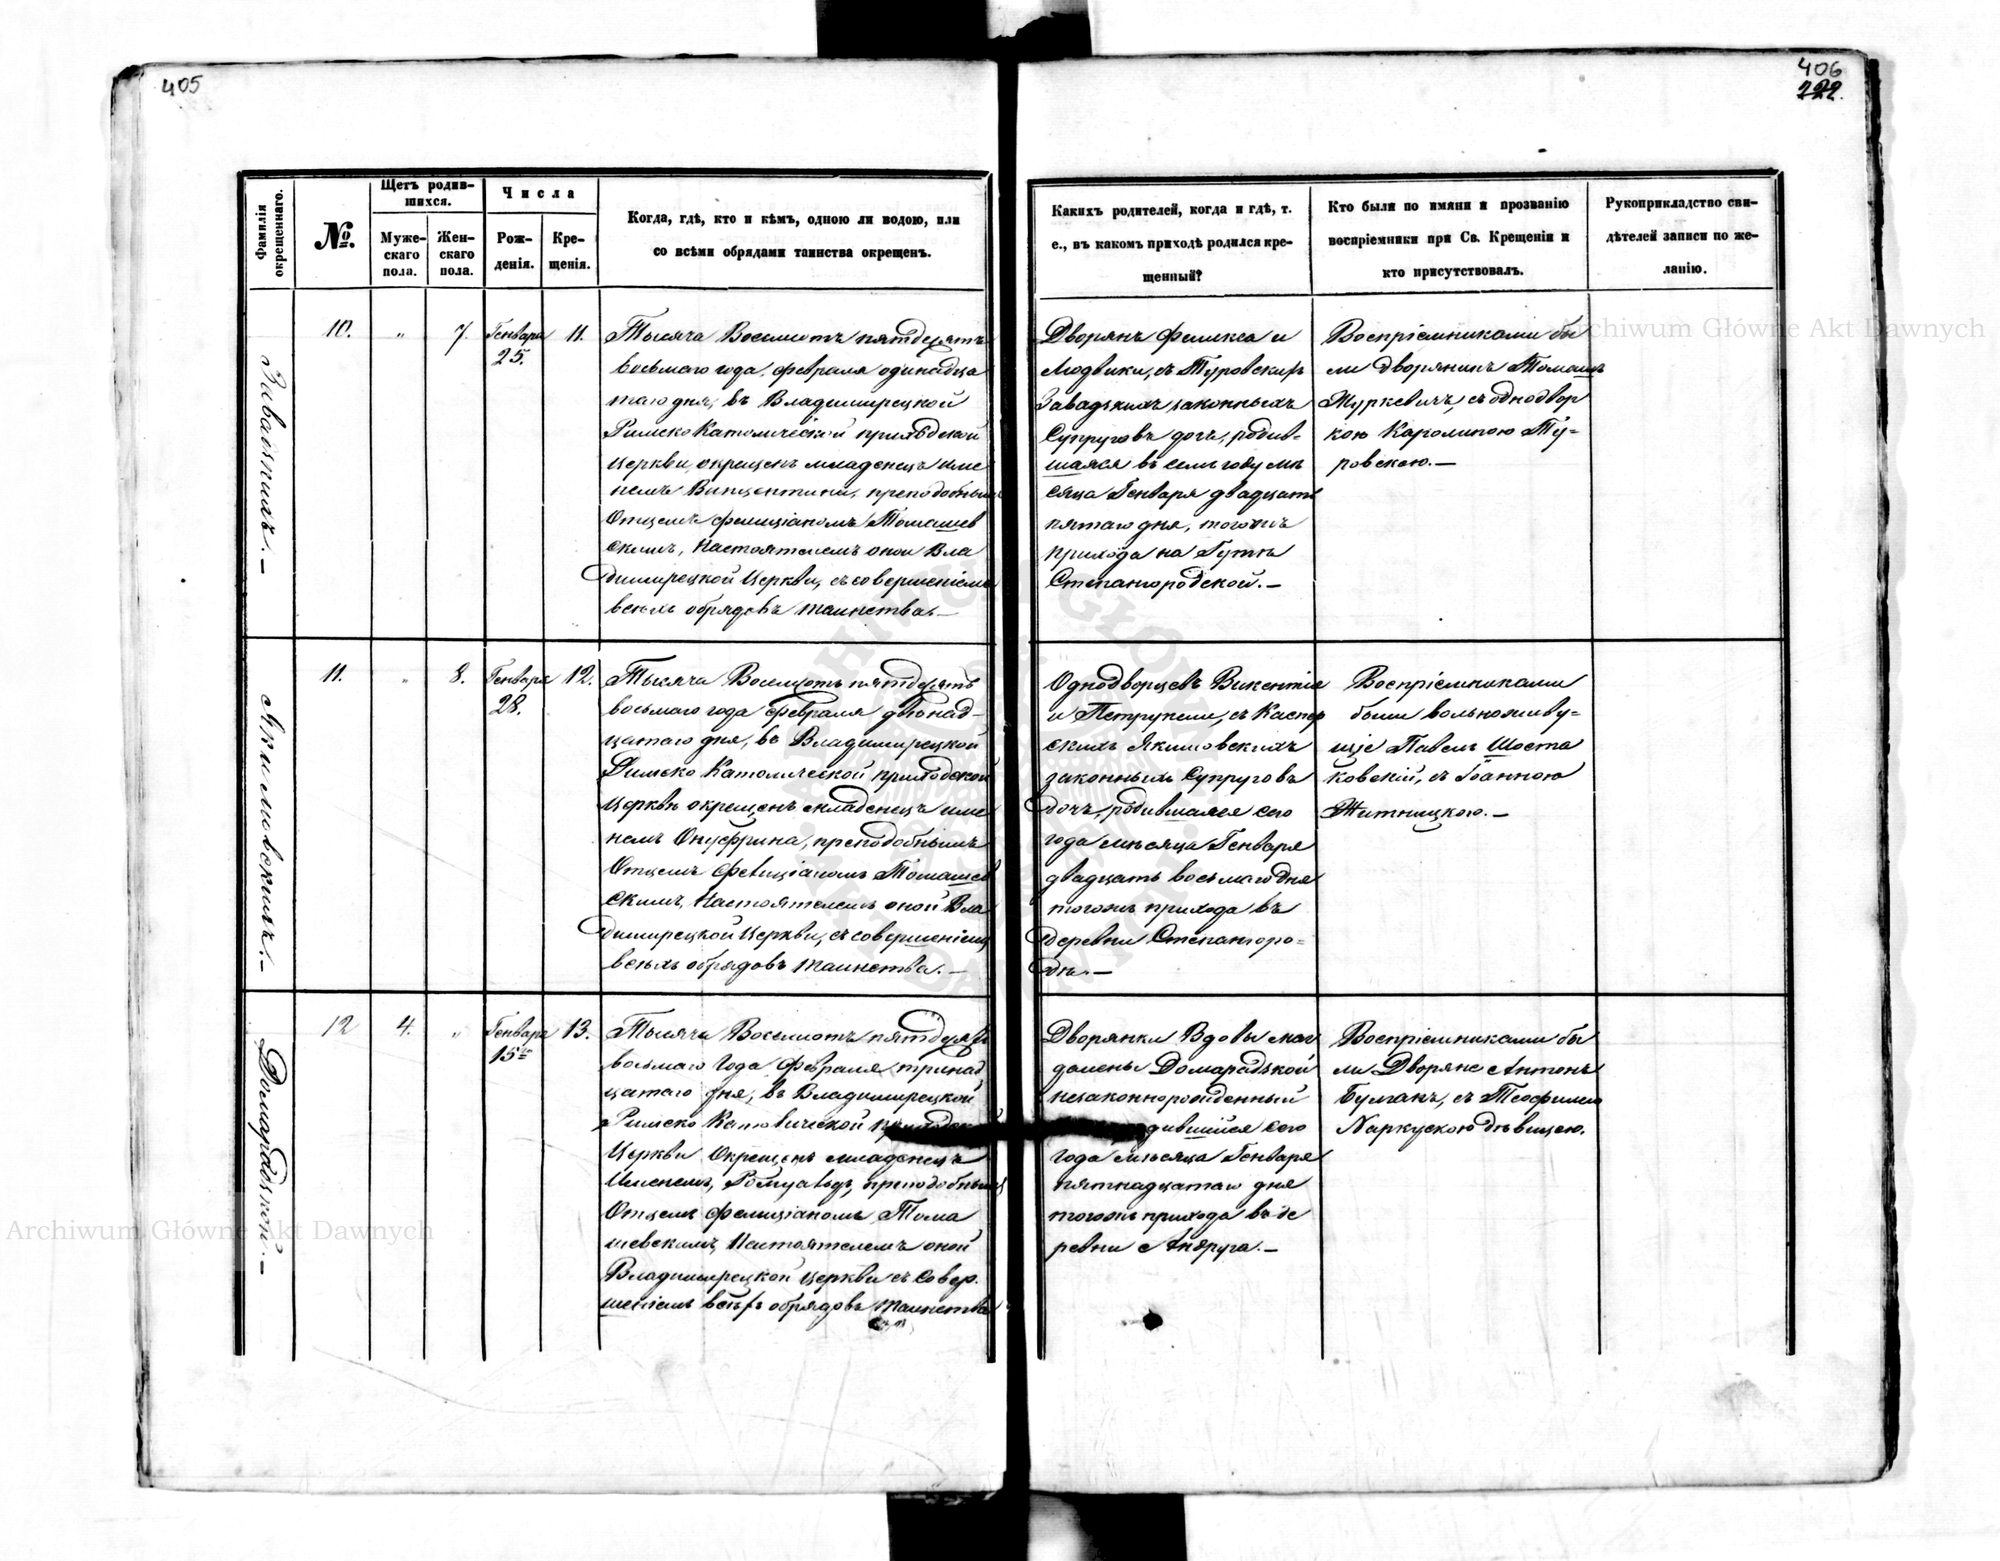 405
406
222.
Фамилія окрещеннаго.
№.
Щетъ родив-
шихся.
Муже-
скаго
пола.
Жен-
скаго
пола.
Числа
Рож-
денія.
Кре-
щенія.
Когда, гдѣ, кто и кѣмъ, одною ли водою, или
со всѣми обрядами таинства окрещенъ.
Какихъ родителей, когда и гдѣ, т.
е., въ какомъ приходѣ родился кре-
щенный?
Кто были по имяни и прозванію
воспріемники при Св. Крещеніи и
кто присутствовалъ.
Рукоприкладство сви-
дѣтелей записи по же-
ланію.
10.
"
7.
Генваря
25.
11.
Тысяча Восемсотъ пятдесятъ
восьмаго года, февраля одинадца
таго дня, въ Владимирецкой
Римско Католической приходской
Церкви, окрещенъ младенецъ име
немъ Винцентина, преподобнымъ
Отцемъ Фелиціаномъ Томашев
скимъ, Настоятелемъ оной Вла
димирецкой Церкви, съ совершеніемъ
всѣхъ обрядовъ таинства.—
Дворянъ Феликса и
Людвики, съ Туровскихъ
Завадскихъ законныхъ
Супруговъ дочь, родив-
шаяся въ семъ году мѣ
сяца Генваря двадцать
пятаго дня, тогожъ
прихода на Гутѣ
Степангородской.—
Воспріемниками бы
ли дворянинъ Томашъ
Журкевичъ, съ однодвор
кою Каролиною Ту-
ровскою.—
Якимовскихъ.—
11.
"
8.
Генваря
28.
12.
Тысяча Восемсотъ пятдесятъ
восьмаго года Февраля двѣнад-
цатаго дня, въ Владимирецкой
Римско Католической приходской
Церкви окрещенъ младенецъ име
немъ Онуфрина, преподобнымъ
Отцемъ Фелиціаномъ Томашев
скимъ, Настоятелемъ оной Вла
димирецкой Церкви, съ совершеніемъ
всѣхъ обрядовъ таинства.—
Однодворцевъ Викентія
и Петрунели, съ Каспер
скихъ Якимовскихъ
законныхъ Супруговъ
дочь, родившаяся сего
года мѣсяца Генваря
двадцать восьмаго дня
тогожъ прихода въ
деревни Степангоро-
дѣ.—
Воспріемниками
были вольноживу-
щіе Павелъ Шоста
ковскій, съ Іоанною
Житницкою.—
Домарадзкой.—
12
4.
"
Генваря
15го
13.
Тысяча Восемсотъ пятдесятъ
восьмаго Года Февраля тринад
цатаго дня, въ Владимирецкой
Римско Католической приходской
Церкви Окрещенъ младенецъ
Именемъ, Ромуальдъ, преподобнымъ
Отцемъ Фелиціаномъ Тома
шевскимъ, Настоятелемъ оной
Владимирецкой Церкви съ Совер.
шеніемъ всѣхъ обрядовъ таинства
Дворянки Вдовы Маг
далены Домарадзкой
незаконнорожденный
дившійся сего
года мѣсяца Генваря
пятнадцатаго дня
тогожъ прихода въ де
ревни Андруга.—
Воспріемниками бы
ли Дворяне Антонъ
Булгакъ, съ Теофилею
Наркускою дѣвицею.
Archiwum Główne Akt Dawnych
Archiwum Główne Akt Dawnych